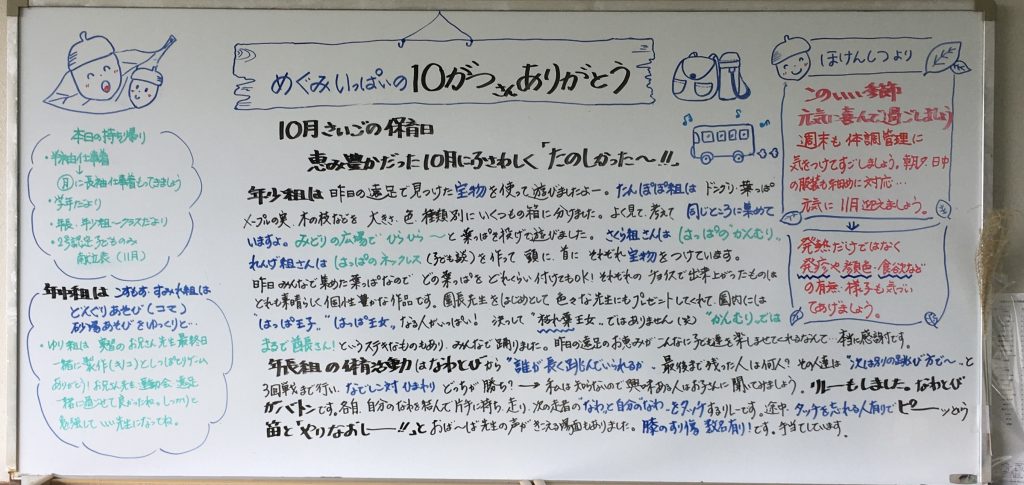 めぐみいっぱいの 10がつさん ありがとう
10月さいごの保育日
恵み豊かだった10月にふさわしく「たのしかった〜!!」
本日の持ち帰り
・半袖仕事着
↓
月に長袖仕事着もってきましょう
・学年だより
・年長、年少組〜クラスだより
・2号認定子どものみ
献立表(11月)
年中組は こすもす・すみれ組は
どんぐりあそび(コマ)
砂場あそびをゆっくりと…
・ゆり組は 実習のお兄さん先生最終日
一緒に製作(キノコ)としっぽとりゲーム
ありがとう!お兄さん先生、運動会 遠足
一緒に過ごせて良かったね。しっかりと
勉強していい先生になってね。
年少組は 昨日の遠足で見つけた宝物を使って遊びましたよー。たんぽぽ組は ドングリ・葉っぱ
メープルの実、木の枝などを 大きさ、色、種類別にいくつもの箱に分けました。よく見て、考えて 同じところに集めて
いますよ。みどりの広場で ひらひら〜と 葉っぱを投げて遊びました。さくら組さんは はっぱの"かんむり"、
れんげ組さんは はっぱのネックレス(子ども談)を作って 頭に、首に それぞれ宝物をつけています。
昨日みんなで集めた葉っぱなので どの葉っぱを どれくらい付けてもOK!それぞれの で出来上がったものは
とても素晴らしく個性豊かな作品です。園長先生をはじめとして 色々な先生にもプレゼントしてくれて、園内には
"はっぱ王子" "はっぱ王女"なる人がいっぱい! 決して"柿の葉王女"ではありません(笑) "かんむり"では
まるで酋長さん!というステキなものもあり、みんなで踊りました。昨日の遠足のお恵みが こんなに子ども達を楽しませてくれるなんて…神に感謝です。
年長組の保育活動はなわとびから "誰が長く跳んでいられるか、最後まで残った人は何人?その人達は "次は別の跳び方で〜"と
3回戦まで行い、なでしこ対ひまわり どっちが勝ち?→私は知らないので興味ある人はお子さんに聞いてみましょう。リレーもしました。なわとび
がバトンです。各自、自分のなわを結んで片手に持ち、走り、次の走者の"なわ"と自分の"なわ"をタッチするリレーです。途中、タッチを忘れる人有りでピーッという
笛と「やりなおしー!!」と おばーば先生の声がきこえる場面もありました。膝のすり傷 数名有り!です。手当てしています。
ほけんしつより
このいい季節
元気に喜んで過ごしましょう
週末も体調管理に
気をつけてすごしましょう。朝夕、日中
の服装も細めに対応…
元気に11月迎えましょう。
発熱だけではなく
発疹や顔色・食欲など
の有無・様子も気づい
てあげましょう。